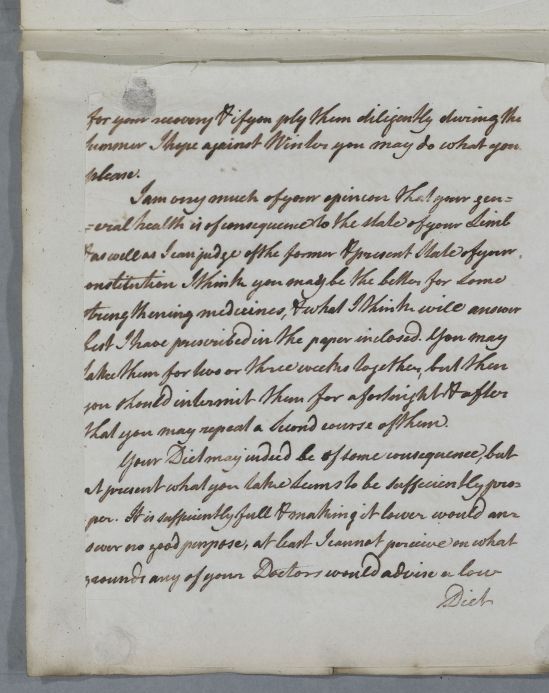 for your recovery & if you ply them diligently during the
Summer I hope against Winter you may do what you
please.
I am very much of your opinion that your gen=
=eral health is of consequence to the state of your Limb
& as well as I can judge of the former & present State of your
onstitution I think you may be the better for some
strengthening medicines, & what I think will answer
best I have prescribed in the paper inclosed. You may
take them for two or three weeks together, but then
you should intermit them for a fortnight & after
that you may repeat a Second course of them.
Your Diet may indeed be of some consequence, but
at present what you take Seems to be sufficiently pro=
=per. It is sufficiently full & making it lower would an=
swer no good purpose, at least I cannot perceive on what
grounds any of your Doctors would advise a low
Diet